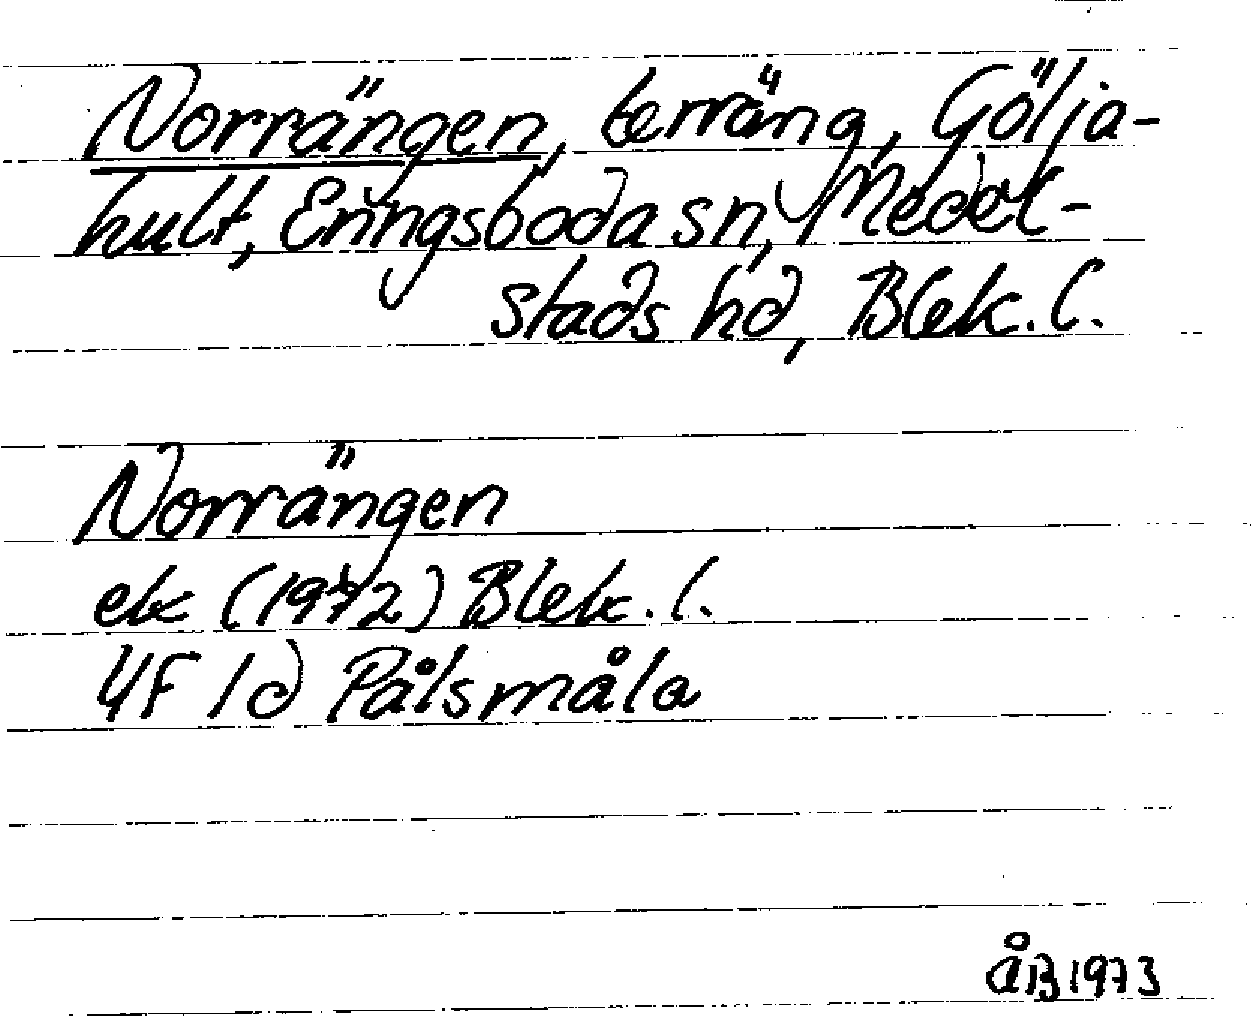 Norrängen, terräng, Gölja-
hult, Eringsboda sn, Medel-
stads hd, Blek. l.
Norrängen
ek (1972) Blek. l.
4F 1d Pålsmåla
ÅB 1973